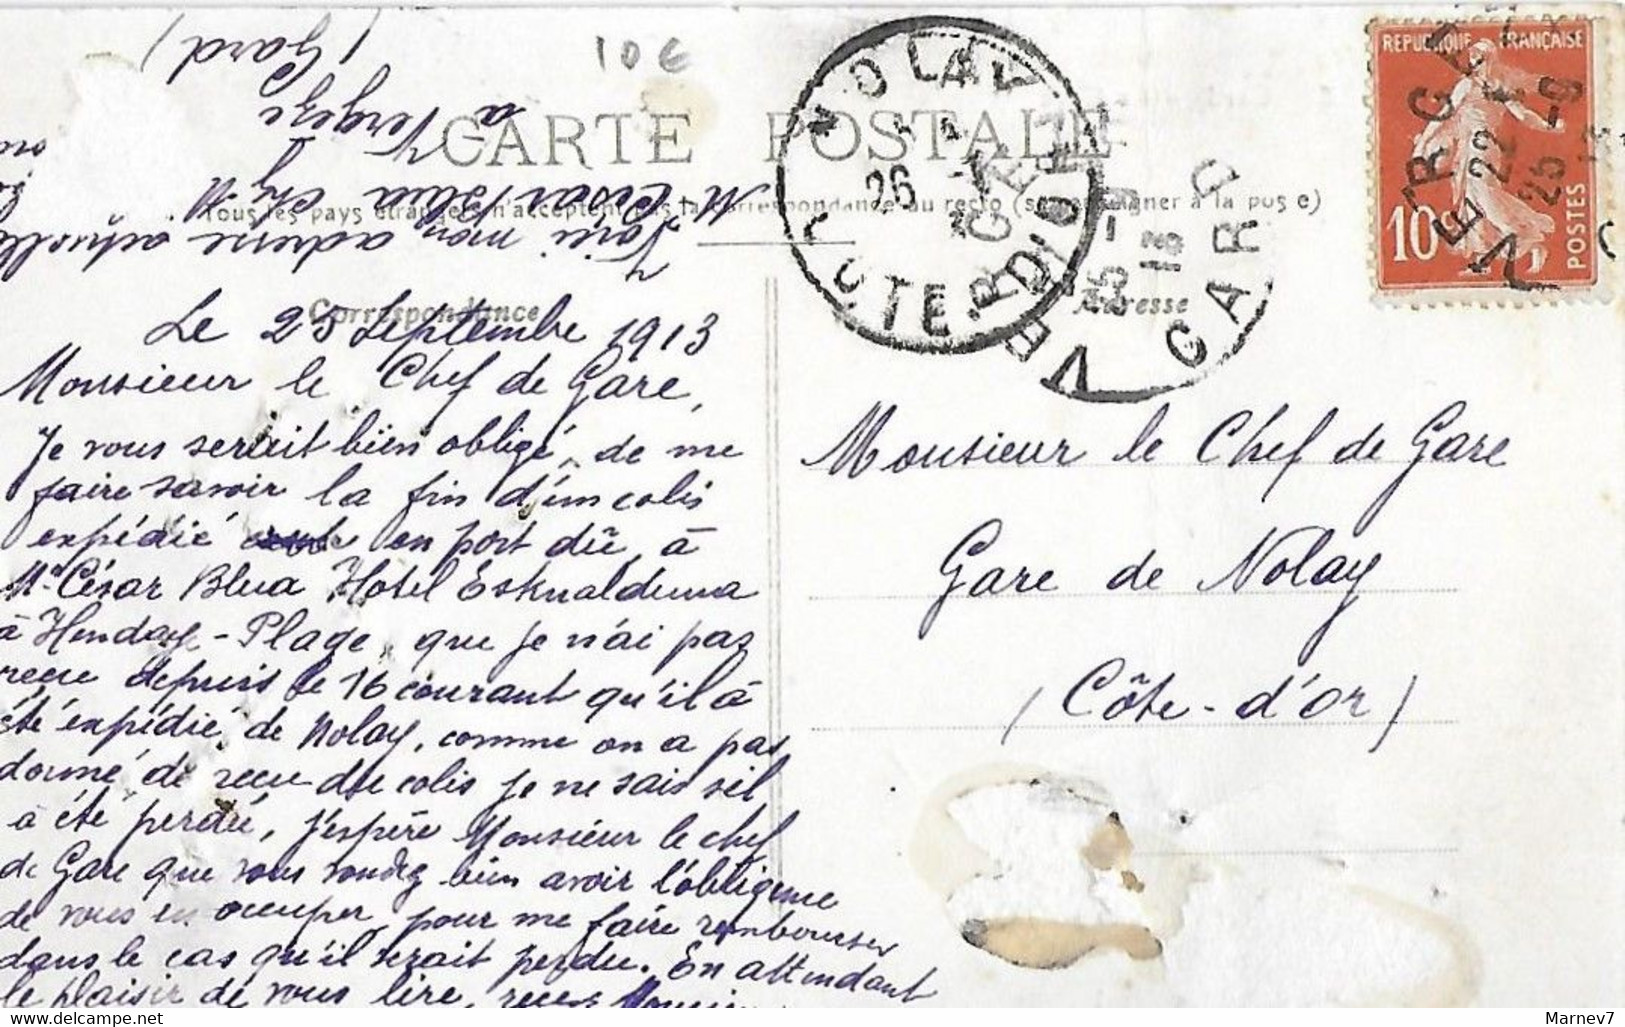 10€
CARTE POSTALE
Tous les pays étrangers n'acceptent pas la correspondance au recto (se renseigner à la poste)
Voir mon adresse actuelle
M César Blua chez M
à Vergèze
(Gard)
REPUBLIQUE FRANÇAISE
10
POSTES
NOLAY
26
COTE-D'OR
VERGEZE
GARD
25 -9
13
VERGEZE
22
25 -9
13
Correspondance
Adresse
Le 25 Septembre 1913
Monsieur le Chef de Gare,
Je vous serait bien obligé, de me
faire savoir la fin d'un colis
expédié en port dû, à
Mr César Blua Hotel Eskualduna
à Hendaye-Plage, que je n'ai pas
recu depuis le 16 courant qu'il à
été expédié, de Nolay, comme on a pas
donné de recu du colis je ne sais s'il
a été perdu, j'espère Monsieur le chef
de Gare que vous voudrez bien avoir l'obligence
de vous en occuper, pour me faire rembourser
dans le cas qu'il serait perdu. En attendant
le plaisir de vous lire, recevez Monsieur
Monsieur le Chef de Gare
Gare de Nolay
(Côte-d'or)
Marnev7